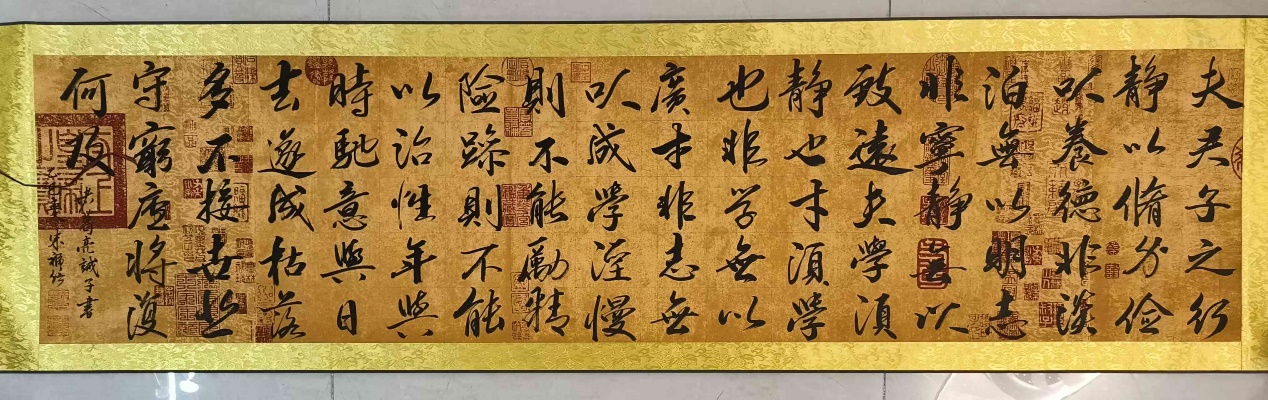 夫君子之行
静以脩身儉
以養德非澹
泊無以明志
非寧静無以
致遠夫學須
静也才須學
也非学無以
廣才非志無
以成學淫慢
則不能勵精
險躁則不能
以治性年與
時馳意與日
去遂成枯落
多不接世悲
守窮廬將復
何及
諸葛亮誡子書